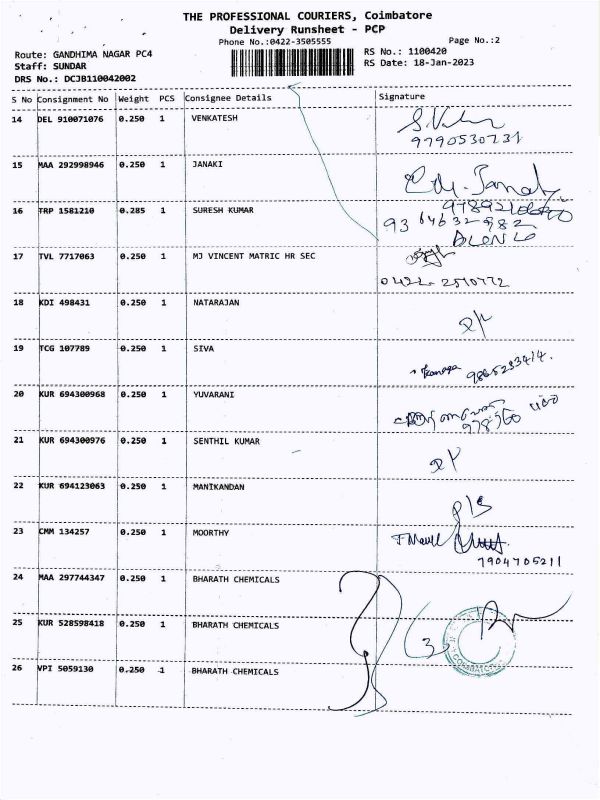 THE PROFESSIONAL COURIERS, Coimbatore
Delivery Runsheet - PCP
Phone No.:0422-3505555
Page No.:2
Route: GANDHIMA NAGAR PC4
RS No.: 1100420
Staff: SUNDAR
RS Date: 18-Jan-2023
DRS No.: DCJB110042002
S No Consignment No Weight PCS Consignee Details Signature
14 DEL 910071076 0.250 1 VENKATESH
9790530731
15 MAA 292998946 0.250 1 JANAKI
16 TRP 1581210 0.285 1 SURESH KUMAR
17 TVL 7717063 0.250 1 MJ VINCENT MATRIC HR SEC
0422-2570772
18 KDI 498431 0.250 1 NATARAJAN
19 TCG 107789 0.250 1 SIVA
20 KUR 694300968 0.250 1 YUVARANI
21 KUR 694300976 0.250 1 SENTHIL KUMAR
22 KUR 694123063 0.250 1 MANIKANDAN
23 CMM 134257 0.250 1 MOORTHY
7904705211
24 MAA 297744347 0.250 1 BHARATH CHEMICALS
25 KUR 528598418 0.250 1 BHARATH CHEMICALS
3
26 VPI 5059130 0.250 1 BHARATH CHEMICALS